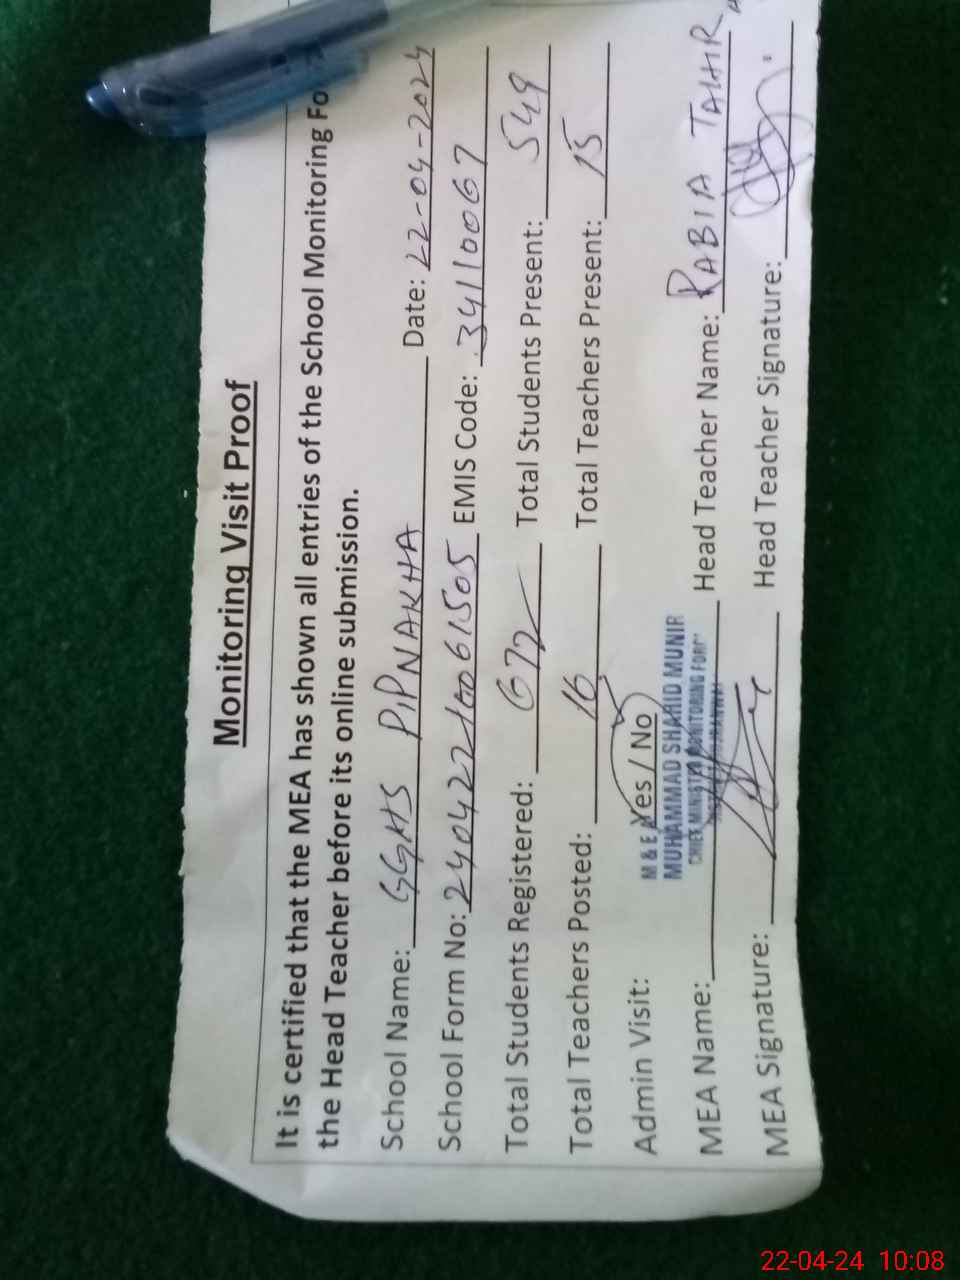 Monitoring Visit Proof
It is certified that the MEA has shown all entries of the School Monitoring Fo
the Head Teacher before its online submission.
School Name: GGHS PIPNAKHA Date: 22-04-2024
School Form No: EMIS Code: 34110067
Total Students Registered: 672 Total Students Present: 549
Total Teachers Posted: 16 Total Teachers Present: 15
Admin Visit: Yes / No
M & E A
MUHAMMAD SHAHID MUNIR
CHIEF MINISTER MONITORING FORC
MEA Name: Head Teacher Name: RABIA TAHIR
MEA Signature: Head Teacher Signature:
22-04-24 10:08